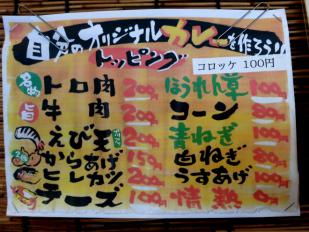 自分のオリジナルカレーを作ろう!!
トッピング
コロッケ 100円
名物
旨
トロ肉 200円
牛肉 200円
えび天 200円
からあげ 150円
ヒレカツ 200円
チーズ 100円
ほうれん草 100円
コーン
青ねぎ 100円
白ねぎ
うすあげ 100円
情熱 0円